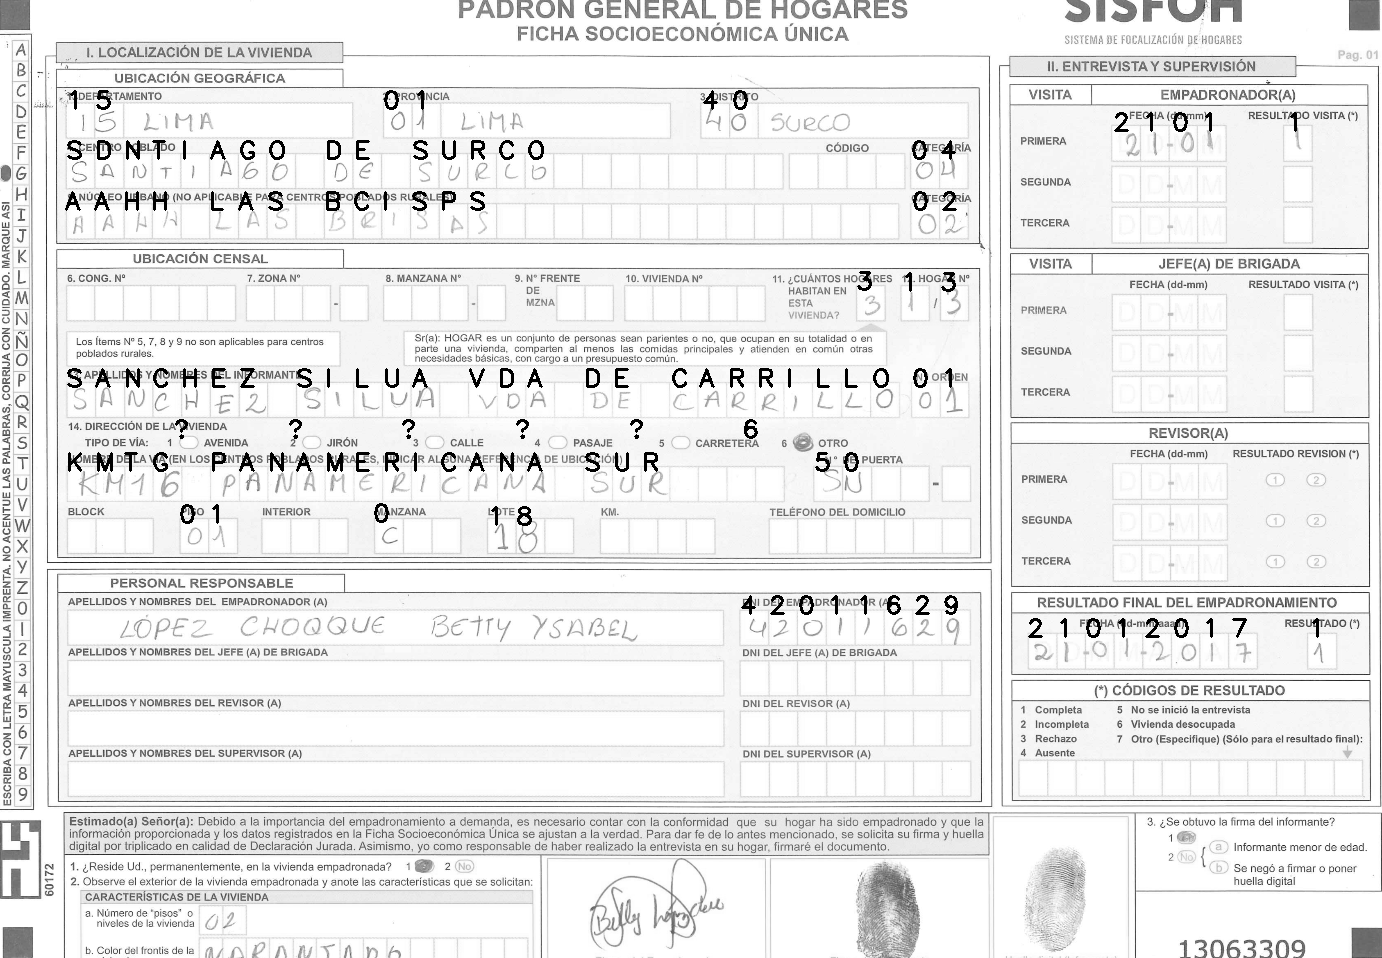 PADRÓN GENERAL DE HOGARES
FICHA SOCIOECONÓMICA ÚNICA
SISFOH
SISTEMA DE FOCALIZACIÓN DE HOGARES
Pag. 01
ESCRIBA CON LETRA MAYUSCULA IMPRENTA. NO ACENTUE LAS PALABRAS, CORRIJA CON CUIDADO. MARQUE ASI
A B C D E F G H I J K L M N Ñ O P Q R S T U V W X Y Z 0 1 2 3 4 5 6 7 8 9
I. LOCALIZACIÓN DE LA VIVIENDA
UBICACIÓN GEOGRÁFICA
1. DEPARTAMENTO 2. PROVINCIA 3. DISTRITO
15 01 40
15 LIMA 01 LIMA 40 SURCO
CENTRO POBLADO CÓDIGO CATEGORÍA
SDNTIAGO DE SURCO 04
SANTIAGO DE SURCO 04
NÚCLEO URBANO (NO APLICABLE PARA CENTROS POBLADOS RURALES) CATEGORÍA
AAHH LAS BCISPS 02
AAHH LAS BRISAS 02
UBICACIÓN CENSAL
6. CONG. Nº 7. ZONA Nº 8. MANZANA Nº 9. Nº FRENTE DE MZNA 10. VIVIENDA Nº 11. ¿CUÁNTOS HOGARES HABITAN EN ESTA VIVIENDA? 12. HOGAR Nº
3 1 3
3 1/3
Los Ítems Nº 5, 7, 8 y 9 no son aplicables para centros poblados rurales.
Sr(a): HOGAR es un conjunto de personas sean parientes o no, que ocupan en su totalidad o en
parte una vivienda, comparten al menos las comidas principales y atienden en común otras
necesidades básicas, con cargo a un presupuesto común.
13. APELLIDOS Y NOMBRES DEL INFORMANTE Nº ORDEN
SANCHEZ SILUA VDA DE CARRILLO 01
SANCHEZ SILUA VDA DE CARRILLO 01
14. DIRECCIÓN DE LA VIVIENDA
? ? ? ? ? 6
TIPO DE VÍA: 1 AVENIDA 2 JIRÓN 3 CALLE 4 PASAJE 5 CARRETERA 6 OTRO
NOMBRE DE LA VÍA (EN LOS CENTROS POBLADOS RURALES, INDICAR ALGUNA REFERENCIA DE UBICACIÓN) Nº DE PUERTA
KMTG PANAMERICANA SUR 50
KM16 PANAMERICANA SUR SN -
BLOCK PISO INTERIOR MANZANA LOTE KM. TELÉFONO DEL DOMICILIO
01 0 18
01 C 18
PERSONAL RESPONSABLE
APELLIDOS Y NOMBRES DEL EMPADRONADOR (A) DNI DEL EMPADRONADOR (A)
42011629
LÓPEZ CHOQQUE BETTY YSABEL 42011629
APELLIDOS Y NOMBRES DEL JEFE (A) DE BRIGADA DNI DEL JEFE (A) DE BRIGADA
APELLIDOS Y NOMBRES DEL REVISOR (A) DNI DEL REVISOR (A)
APELLIDOS Y NOMBRES DEL SUPERVISOR (A) DNI DEL SUPERVISOR (A)
II. ENTREVISTA Y SUPERVISIÓN
VISITA EMPADRONADOR(A)
FECHA (dd-mm) RESULTADO VISITA (*)
2101 1
PRIMERA 21-01 1
SEGUNDA DD-MM
TERCERA DD-MM
VISITA JEFE(A) DE BRIGADA
FECHA (dd-mm) RESULTADO VISITA (*)
PRIMERA DD-MM
SEGUNDA DD-MM
TERCERA DD-MM
REVISOR(A)
FECHA (dd-mm) RESULTADO REVISION (*)
PRIMERA DD-MM 1 2
SEGUNDA DD-MM 1 2
TERCERA DD-MM 1 2
RESULTADO FINAL DEL EMPADRONAMIENTO
FECHA (dd-mm-aaaa) RESULTADO (*)
21012017 1
21-01-2017 1
(*) CÓDIGOS DE RESULTADO
1 Completa 5 No se inició la entrevista
2 Incompleta 6 Vivienda desocupada
3 Rechazo 7 Otro (Especifique) (Sólo para el resultado final):
4 Ausente
60172
Estimado(a) Señor(a): Debido a la importancia del empadronamiento a demanda, es necesario contar con la conformidad que su hogar ha sido empadronado y que la
información proporcionada y los datos registrados en la Ficha Socioeconómica Única se ajustan a la verdad. Para dar fe de lo antes mencionado, se solicita su firma y huella
digital por triplicado en calidad de Declaración Jurada. Asimismo, yo como responsable de haber realizado la entrevista en su hogar, firmaré el documento.
1. ¿Reside Ud., permanentemente, en la vivienda empadronada? 1 2 No
2. Observe el exterior de la vivienda empadronada y anote las características que se solicitan:
CARACTERÍSTICAS DE LA VIVIENDA
a. Número de "pisos" o niveles de la vivienda 02
b. Color del frontis de la
3. ¿Se obtuvo la firma del informante?
1
2 No
a Informante menor de edad.
b Se negó a firmar o poner huella digital
13063309